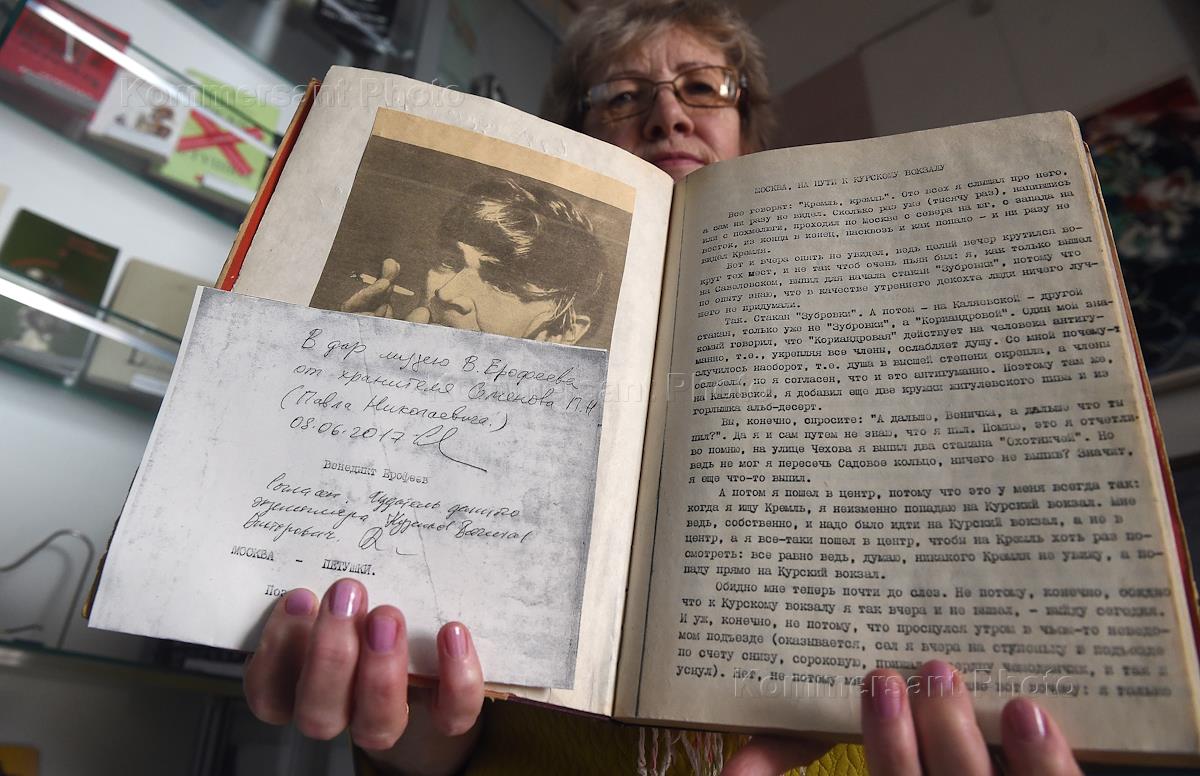 Kommersant Photo
В дар музею В. Ерофеева
от хранителя Семенова П.Н
(Павла Николаевича.)
08.06.2017
Венедикт Ерофеев
Согласен.
МОСКВА - ПЕТУШКИ.
МОСКВА. НА ПУТИ К КУРСКОМУ ВОКЗАЛУ
Все говорят: "Кремль, кремль". Ото всех я слышал про него,
а сам ни разу не видел. Сколько раз уже (тысячу раз), напившись
или с похмелюги, проходил по Москве с севера на юг, с запада на
восток, из конца в конец, насквозь и как попало - и ни разу не
видел Кремля.
Вот и вчера опять не увидел, ведь целый вечер крутился во-
круг тех мест, и не так чтоб очень пьян был: я, как только вышел
на Савеловском, выпил для начала стакан "Зубровки", потому что
по опыту знаю, что в качестве утреннего декохта люди ничего луч-
шего не придумали.
Так. Стакан "Зубровки". А потом - на Каляевской - другой
стакан, только уже не "Зубровки", а "Кориандровой". Один мой зна-
комый говорил, что "Кориандровая" действует на человека антигу-
манно, т.е., укрепляя все члены, ослабляет душу. Со мной почему-т
случилось наоборот, т.е. душа в высшей степени окрепла, а члены
ослабели, но я согласен, что и это антигуманно. Поэтому там же,
на Каляевской, я добавил еще две кружки жигулевского пива и из
горлышка альб-десерт.
Вы, конечно, спросите: "А дальше, Веничка, а дальше что ты
пил?". Да я и сам путем не знаю, что я пил. Помню, это я отчетли-
во помню, на улице Чехова я выпил два стакана "Охотничьей". Но
ведь не мог я пересечь Садовое кольцо, ничего не выпив? Значит,
я еще что-то выпил.
А потом я пошел в центр, потому что это у меня всегда так:
когда я ищу Кремль, я неизменно попадаю на Курский вокзал. Мне
ведь, собственно, и надо было идти на Курский вокзал, а не в
центр, а я все-таки пошел в центр, чтобы на Кремль хоть раз по-
смотреть: все равно ведь, думаю, никакого Кремля не увижу, а по-
паду прямо на Курский вокзал.
Обидно мне теперь почти до слез. Не потому, конечно, обидно
что к Курскому вокзалу я так вчера и не вышел, - выйду сегодня.
И уж, конечно, не потому, что проснулся утром в чьем-то неведо-
мом подъезде (оказывается, сел я вчера на ступеньку в подъезде
по счету снизу, сороковую, прижал к сердцу чемоданчик, и так и
уснул). Нет, не потому мне обидно. Обидно вот почему: я только
Kommersant Photo
Kommersant Photo